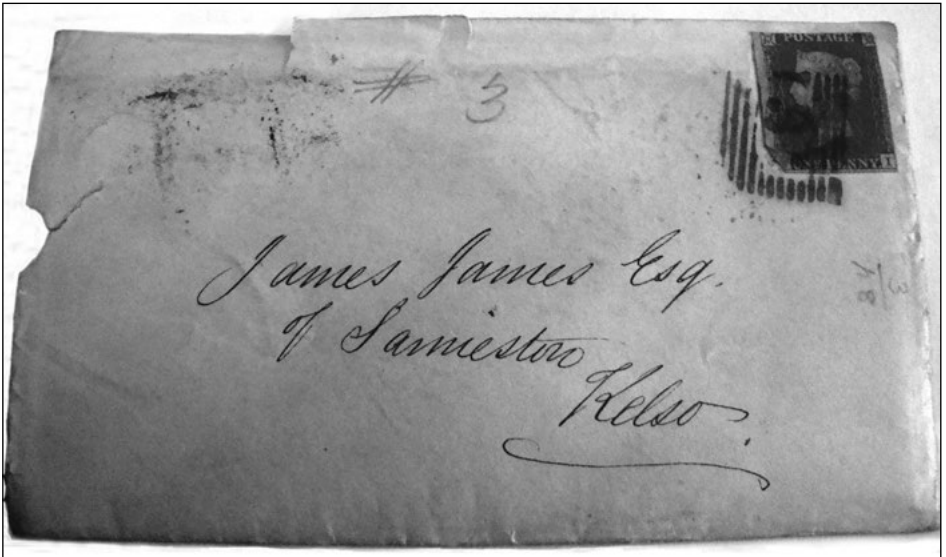 POSTAGE
# 3
ONE PENNY
I
James James Esq.
of Samieston
Kelso.